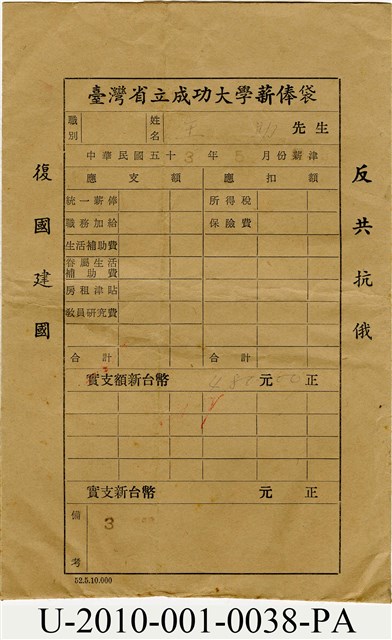 臺灣省立成功大學薪俸袋
職別 姓名 先生
中華民國五十3年5月份薪津
應支額 應扣額
統一薪俸 所得稅
職務加給 保險費
生活補助費
眷屬生活補助費
房租津貼
教員研究費
合計 合計
實支額新台幣 元正
實支新台幣 元正
備考 3
52.5.10.000
反共抗俄
復國建國
U-2010-001-0038-PA